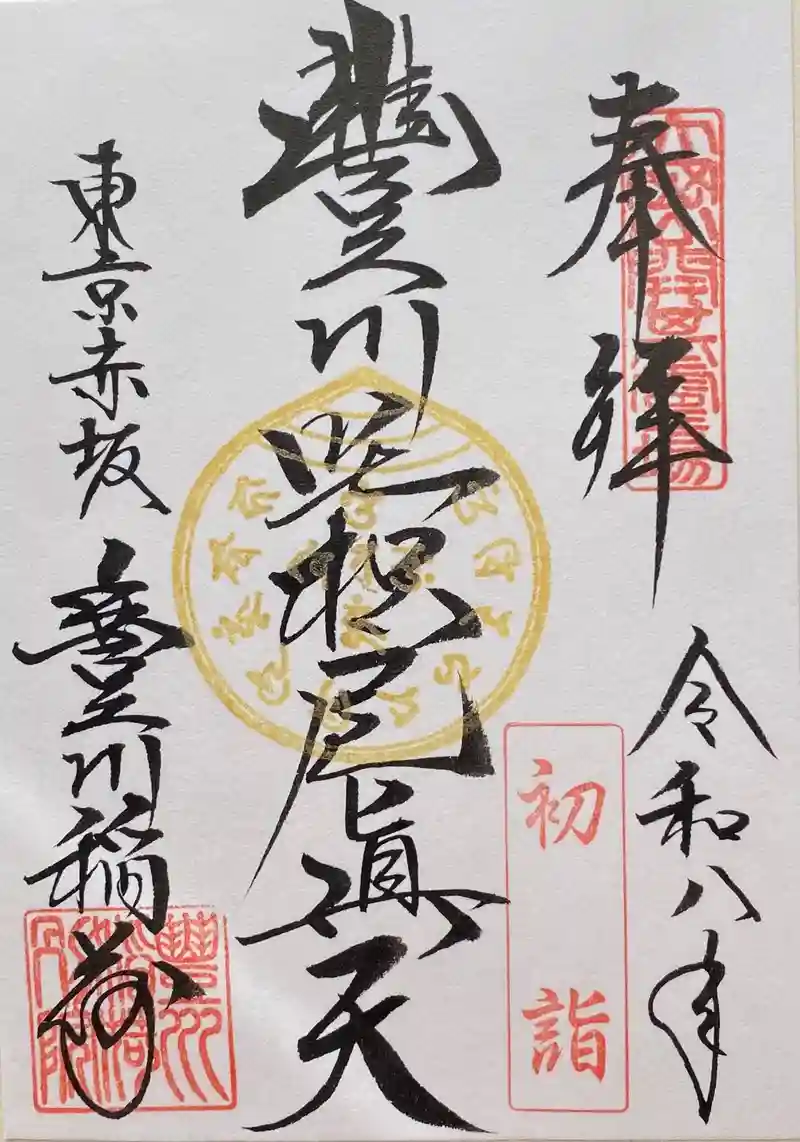 奉拝
令和八年
初詣
豐川吒枳尼眞天
東京赤坂
豊川稲荷